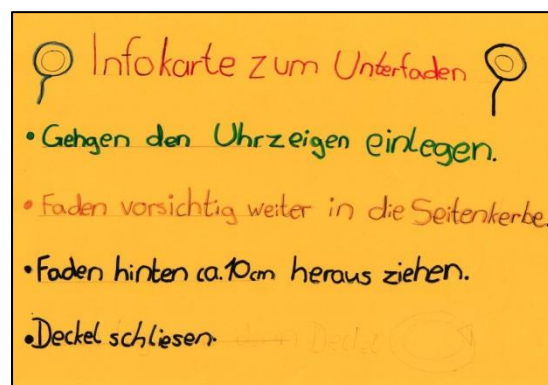 Infokarte zum Unterfaden
• Gehgen den Uhrzeigen einlegen.
• Faden vorsichtig weiter in die Seitenkerbe.
• Faden hinten ca. 10cm heraus ziehen.
• Deckel schliesen.